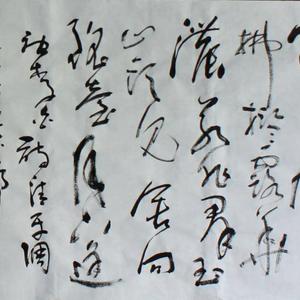 拂槛露華
濃若非群玉
山頭見會向
瑶臺月下逢
李白詩清平调